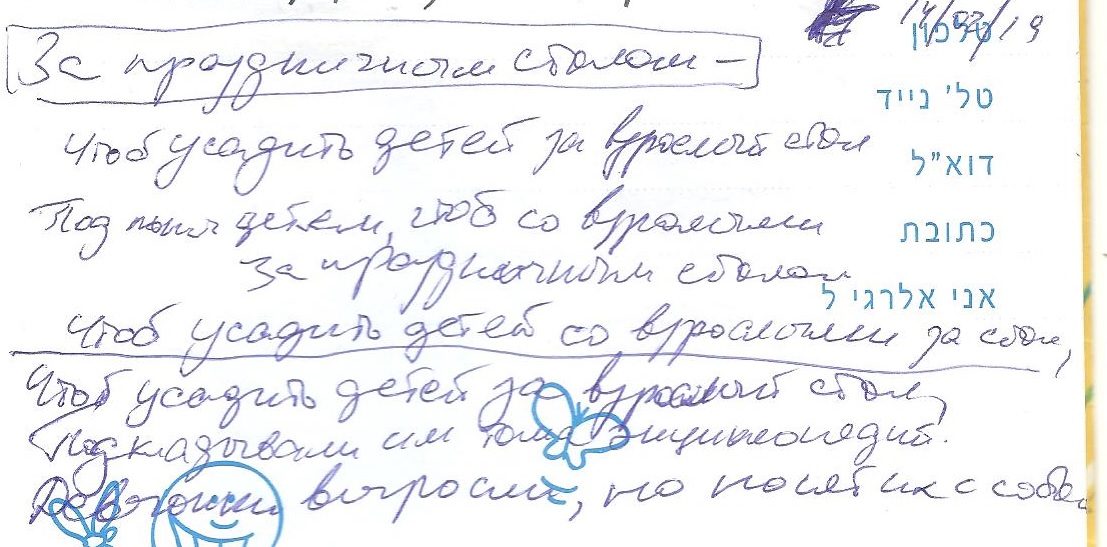 14/07/19
טלפון
За праздничным столом –
טל' נייד
Чтоб усадить детей за взрослый стол
דוא"ל
Под детям, чтоб со взрослыми
כתובת
за праздничным столом
אני אלרגי ל
Чтоб усадить детей со взрослыми за стол,
Чтоб усадить детей за взрослый стол,
Подкладывали им тома энциклопедий.
Девчонки выросли, но носят их с собой